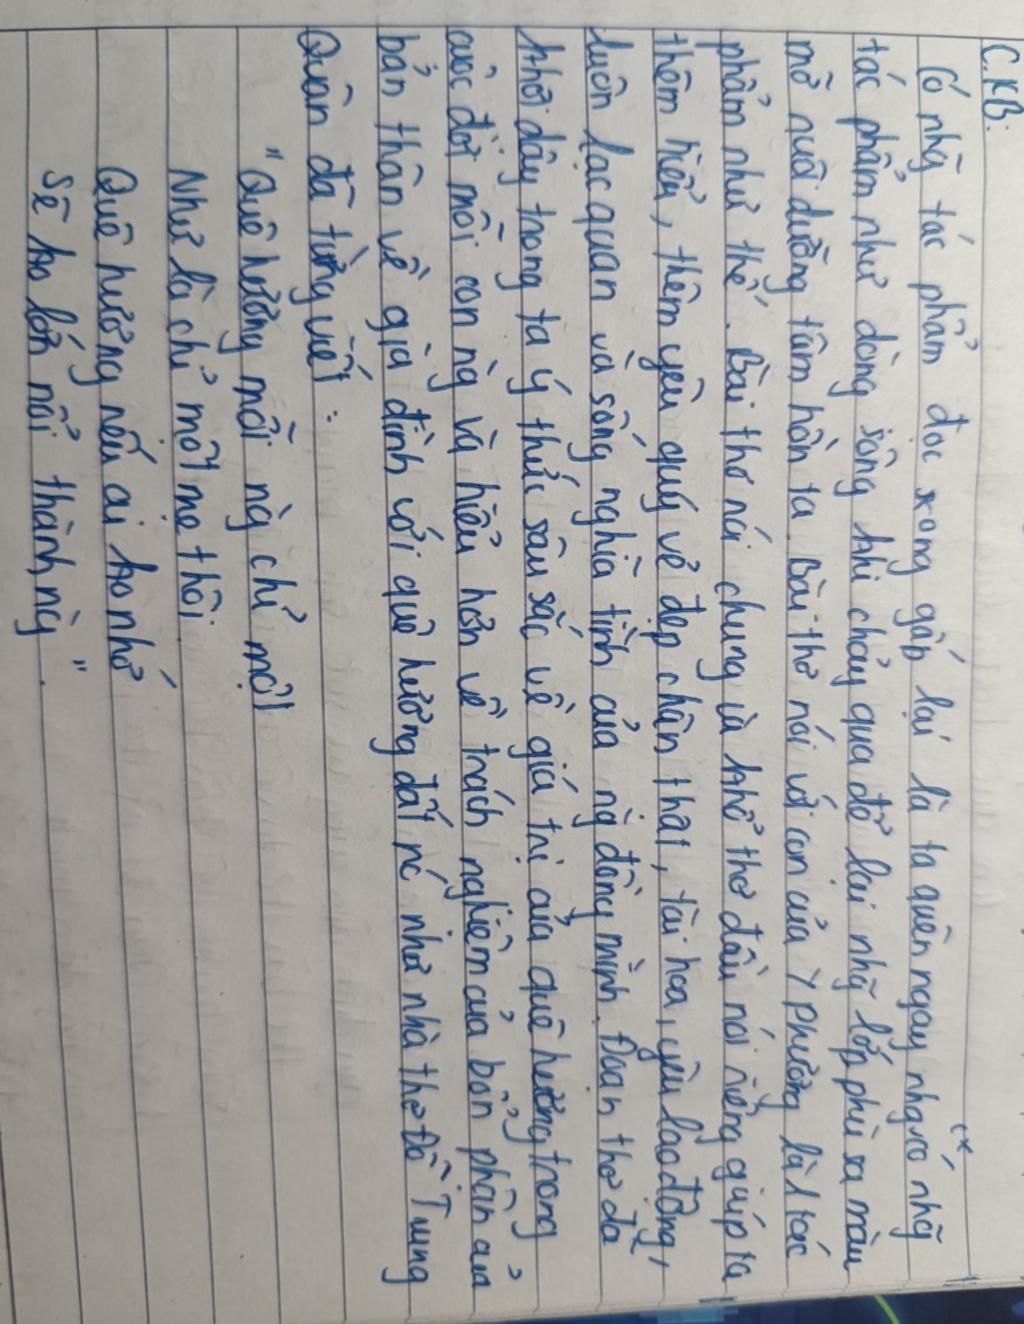 C.KB:
Có nhg~ tác phẩm đọc xong gấp lại là ta quên ngay nhg có nhg~
tác phẩm như dòng sông khi chảy qua để lại nhg~ lớp phù sa màu
mỡ nuôi dưỡng tâm hồn ta. Bài thơ nói với con của Y Phương là 1 tác
phẩm như thế. Bài thơ nói chung và khổ thơ đầu nói riêng giúp ta
thêm hiểu, thêm yêu quý vẻ đẹp chân thật, tài hoa, yêu lao động,
luôn lạc quan và sống nghĩa tình của ng đồng mình. Đoạn thơ đã
khơi dậy trong ta ý thức sâu sắc về giá trị của quê hương trong
cuộc đời mỗi con ng và hiểu hơn về trách nghiệm của bổn phận của
bản thân về gia đình với quê hương đất nc như nhà thơ Đỗ Trung
Quân đã từng viết:
"Quê hương mỗi ng chỉ một
Như là chỉ một mẹ thôi
Quê hương nếu ai ko nhớ
Sẽ ko lớn nổi thành ng".